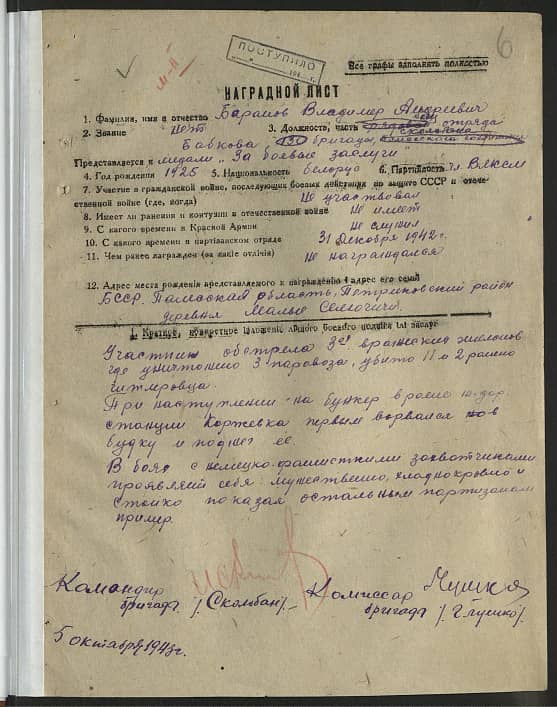 6
ПОСТУПИЛО
194 г.
Все графы заполнять полностью
НАГРАДНОЙ ЛИСТ
1. Фамилия, имя и отчество Баранов Владимир Андреевич
2. Звание нет 3. Должность, часть отряда
Бабкова 130 бригады,
Представляется к медали „За боевые заслуги"
4. Год рождения 1925 5. Национальность белорус 6. Партийность чл ВЛКСМ
7. Участие в гражданской войне, последующих боевых действиях по защите СССР и отече-
ственной войне (где, когда) Не участвовал
8. Имеет ли ранения и контузии в отечественной войне Не имеет
9. С какого времени в Красной Армии Не служил
10. С какого времени в партизанском отряде 31 декабря 1942 г.
11. Чем ранее награжден (за какие отличия) Не награждался
12. Адрес места рождения представляемого к награждению и адрес его семьи
БССР, Полесская область, Петриковский район
деревня Малые Селютичи.
1. Краткое, конкретное изложение личного боевого подвига или заслуг
Участник обстрела 3ех вражеских эшелонов
где уничтожено 3 паровоза, убито 11 и 2 ранено
гитлеровца.
При наступлении на бункер в районе ж-дор.
станции Коржевка первым ворвался в
будку и поджег её.
В боях с немецко-фашистскими захватчиками
проявляет себя мужественно, хладнокровно и
стойко показал остальным партизанам
пример.
Командир Комиссар
бригады /Скомбан/ бригады /Глушко/
5 октября 1943 г.